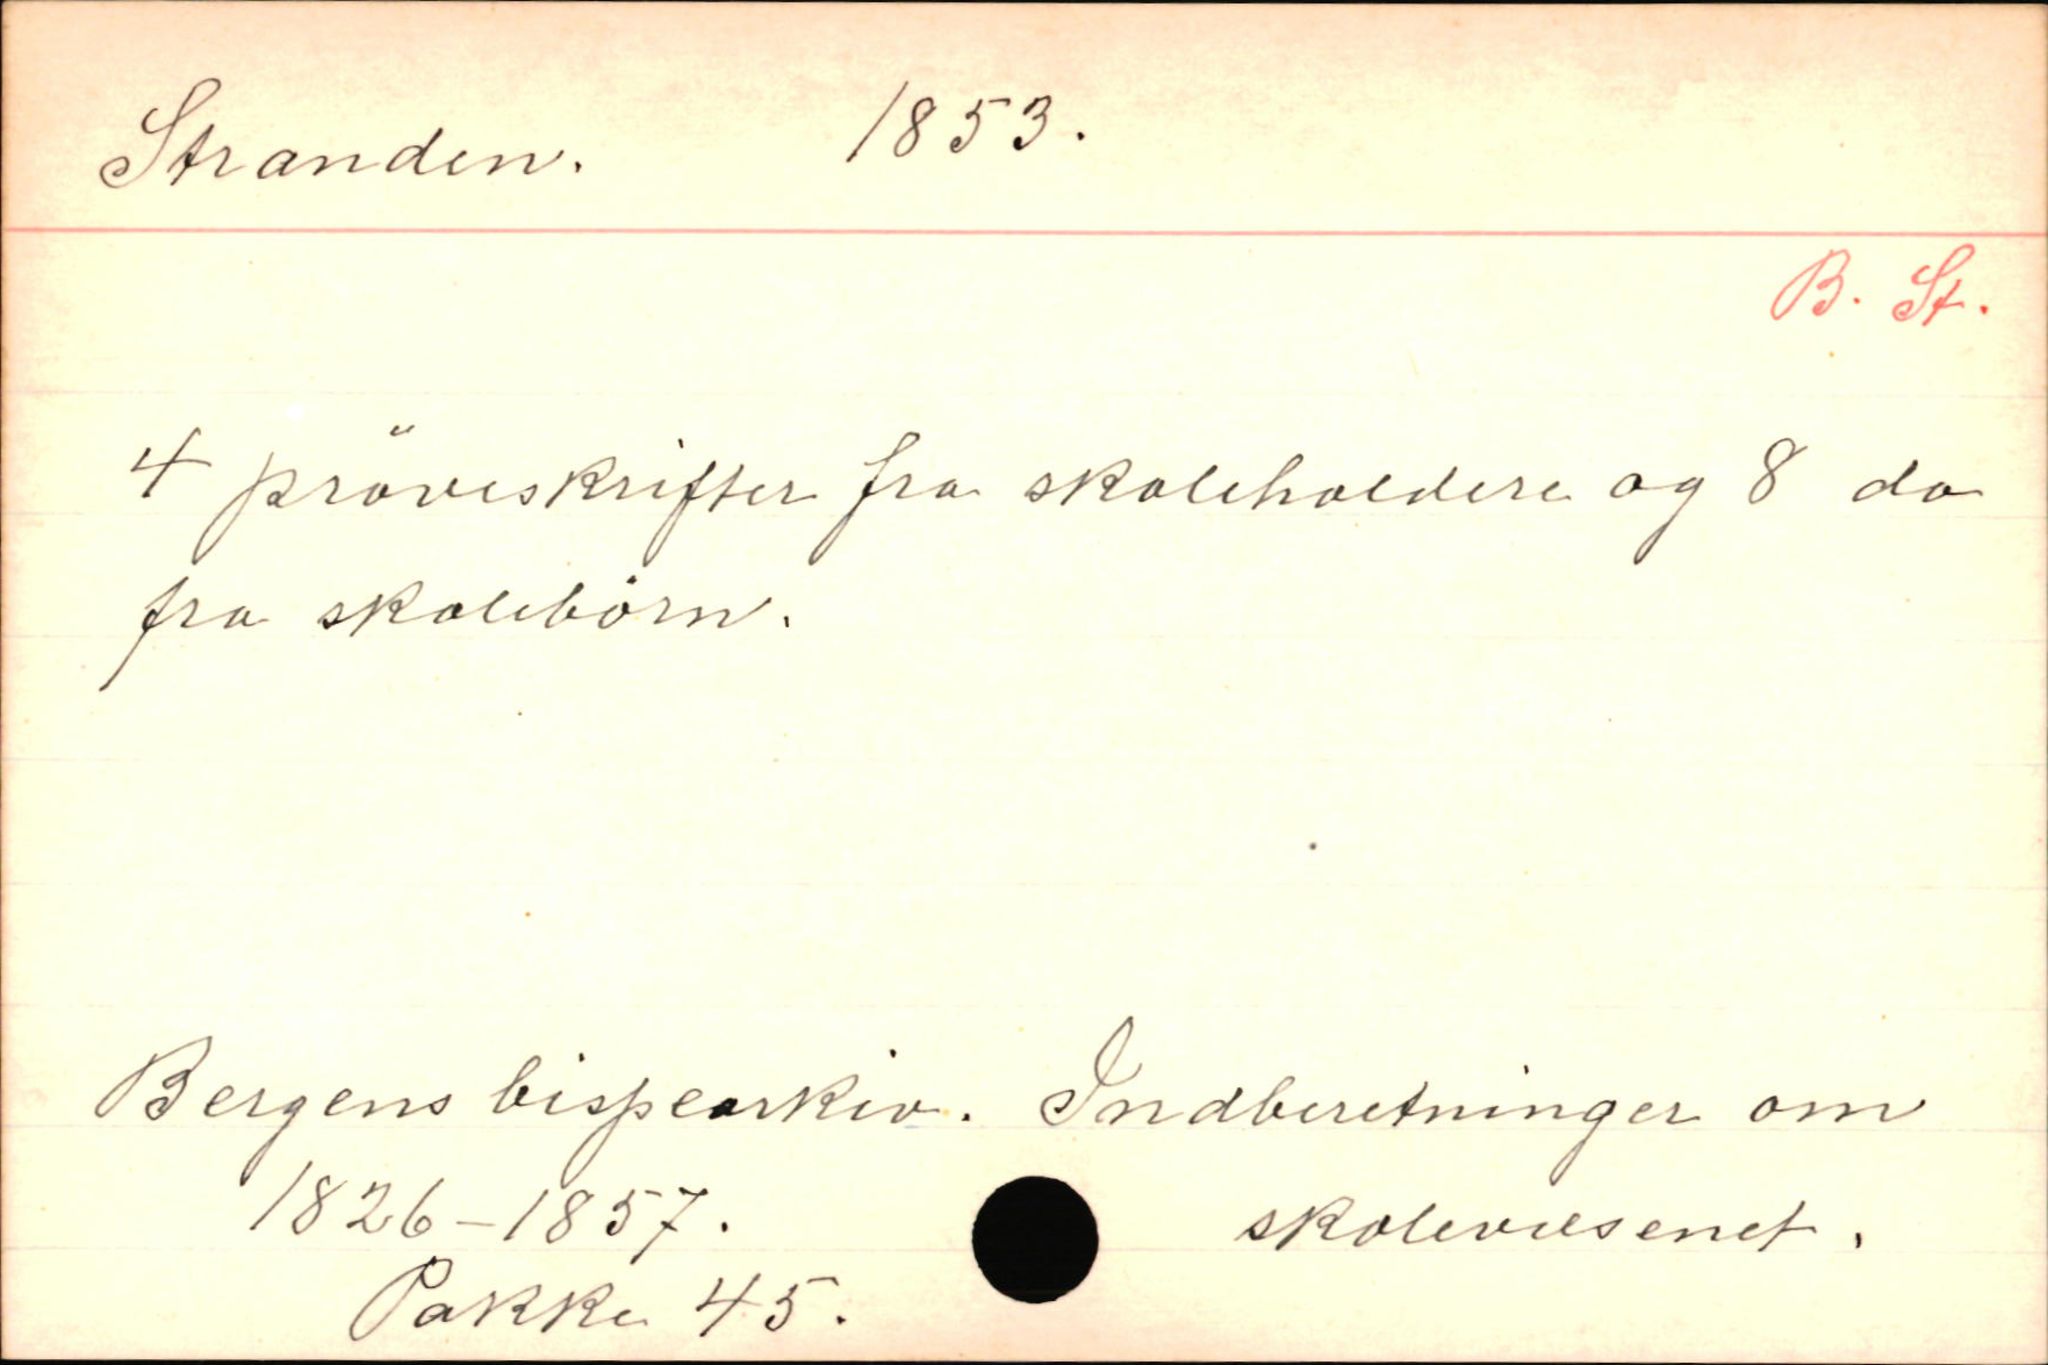 Stranden. 1853.
B. St.
4 pröveskrifter fra skoleholdere og 8 do
fra skolebörn.
Bergens bispearkiv. Indberetninger om
1826-1857. skolevæsenet.
Pakke 45.